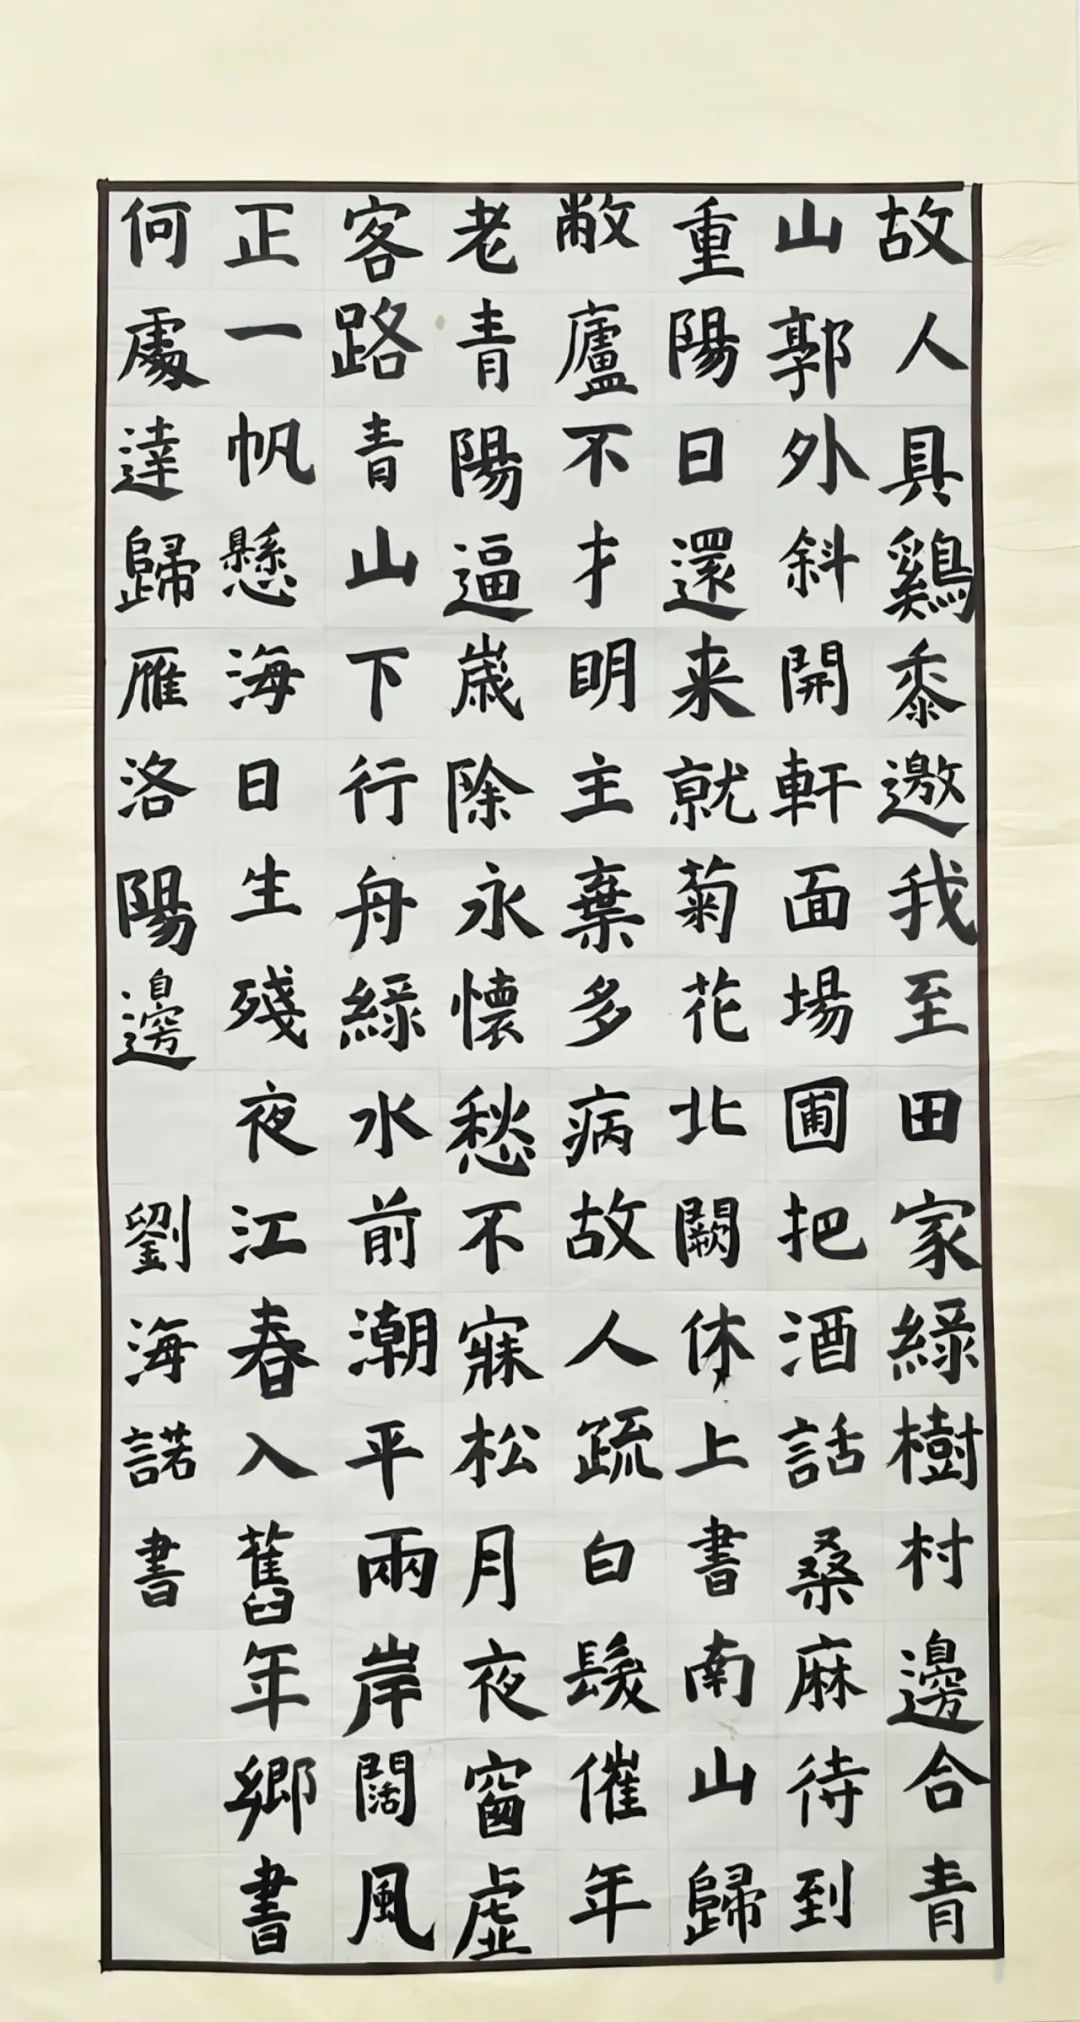 故人具鷄黍邀我至田家綠樹村邊合青
山郭外斜開軒面場圃把酒話桑麻待到
重陽日還来就菊花北闕休上書南山歸
敝廬不才明主棄多病故人疏白髮催年
老青陽逼歲除永懷愁不寐松月夜窗虛
客路青山下行舟綠水前潮平兩岸闊風
正一帆懸海日生殘夜江春入舊年鄉書
何處達歸雁洛陽邊 劉海諾書